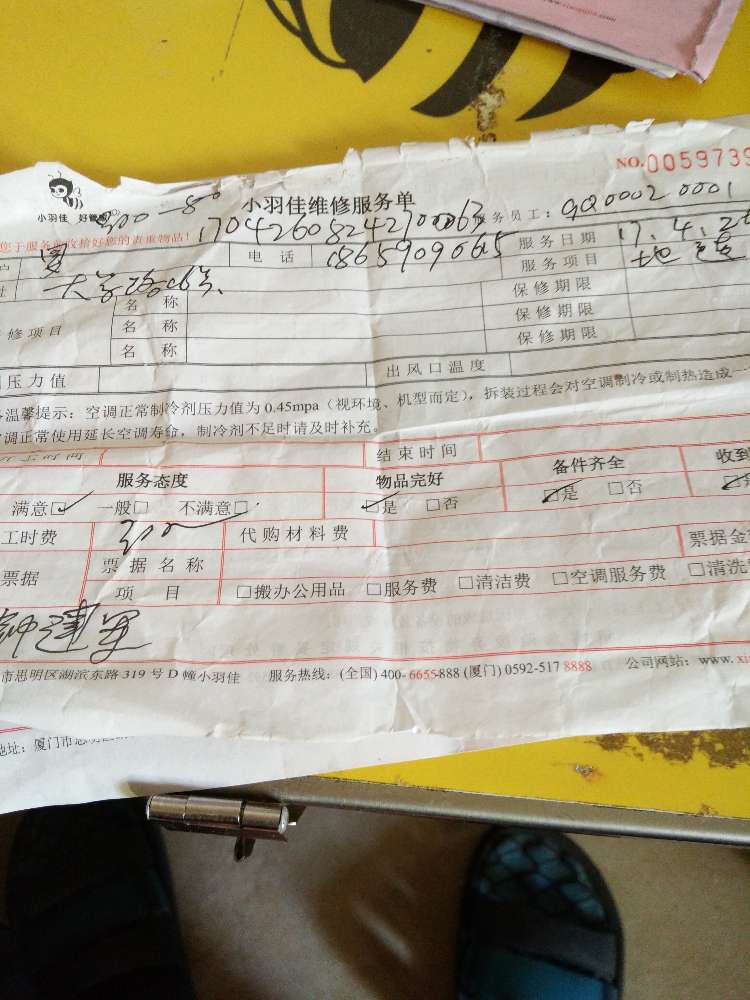 NO.0059739
小羽佳 好管家
300-50
小羽佳维修服务单
您于服务前收拾好您的贵重物品!
17042608242700063
服务员工: GQ0002 0001
电 话 18659090615
服务日期 17.4.26
服务项目
名 称
保修期限
修项目 名 称
保修期限
名 称
保修期限
压力值
出风口温度
温馨提示: 空调正常制冷剂压力值为 0.45mpa (视环境、机型而定), 拆装过程会对空调制冷或制热造成一
调正常使用延长空调寿命, 制冷剂不足时请及时补充。
结束时间
服务态度 物品完好 备件齐全 收到
满意☑ 一般□ 不满意□ ☑是 □否 ☑是 □否
工时费 300 代购材料费
票据 票据名称 票据金
项 目 □搬办公用品 □服务费 □清洁费 □空调服务费 □清洗
市思明区湖滨东路 319 号 D 幢小羽佳 服务热线: (全国) 400-6655-888 (厦门) 0592-517 8888 公司网站: www.xi
地址: 厦门市思明区